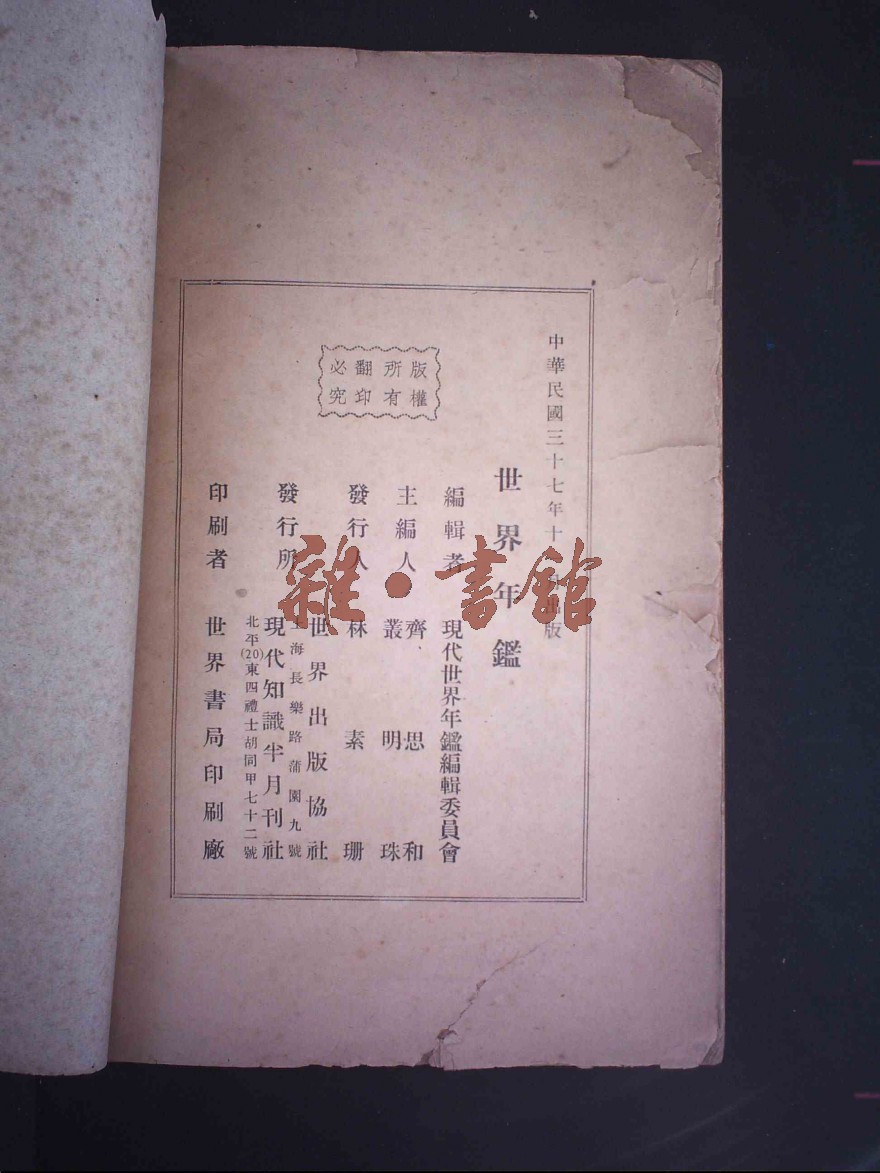 中華民國三十七年十月出版
世界年鑑
版權
所有
翻印
必究
編輯者 現代世界年鑑編輯委員會
主編人 齊思和
叢明珠
發行人 林素珊
發行所 世界出版協社
上海長樂路蒲園九號
現代知識半月刊社
北平(20)東四禮士胡同甲七十二號
印刷者 世界書局印刷廠
雜·書館